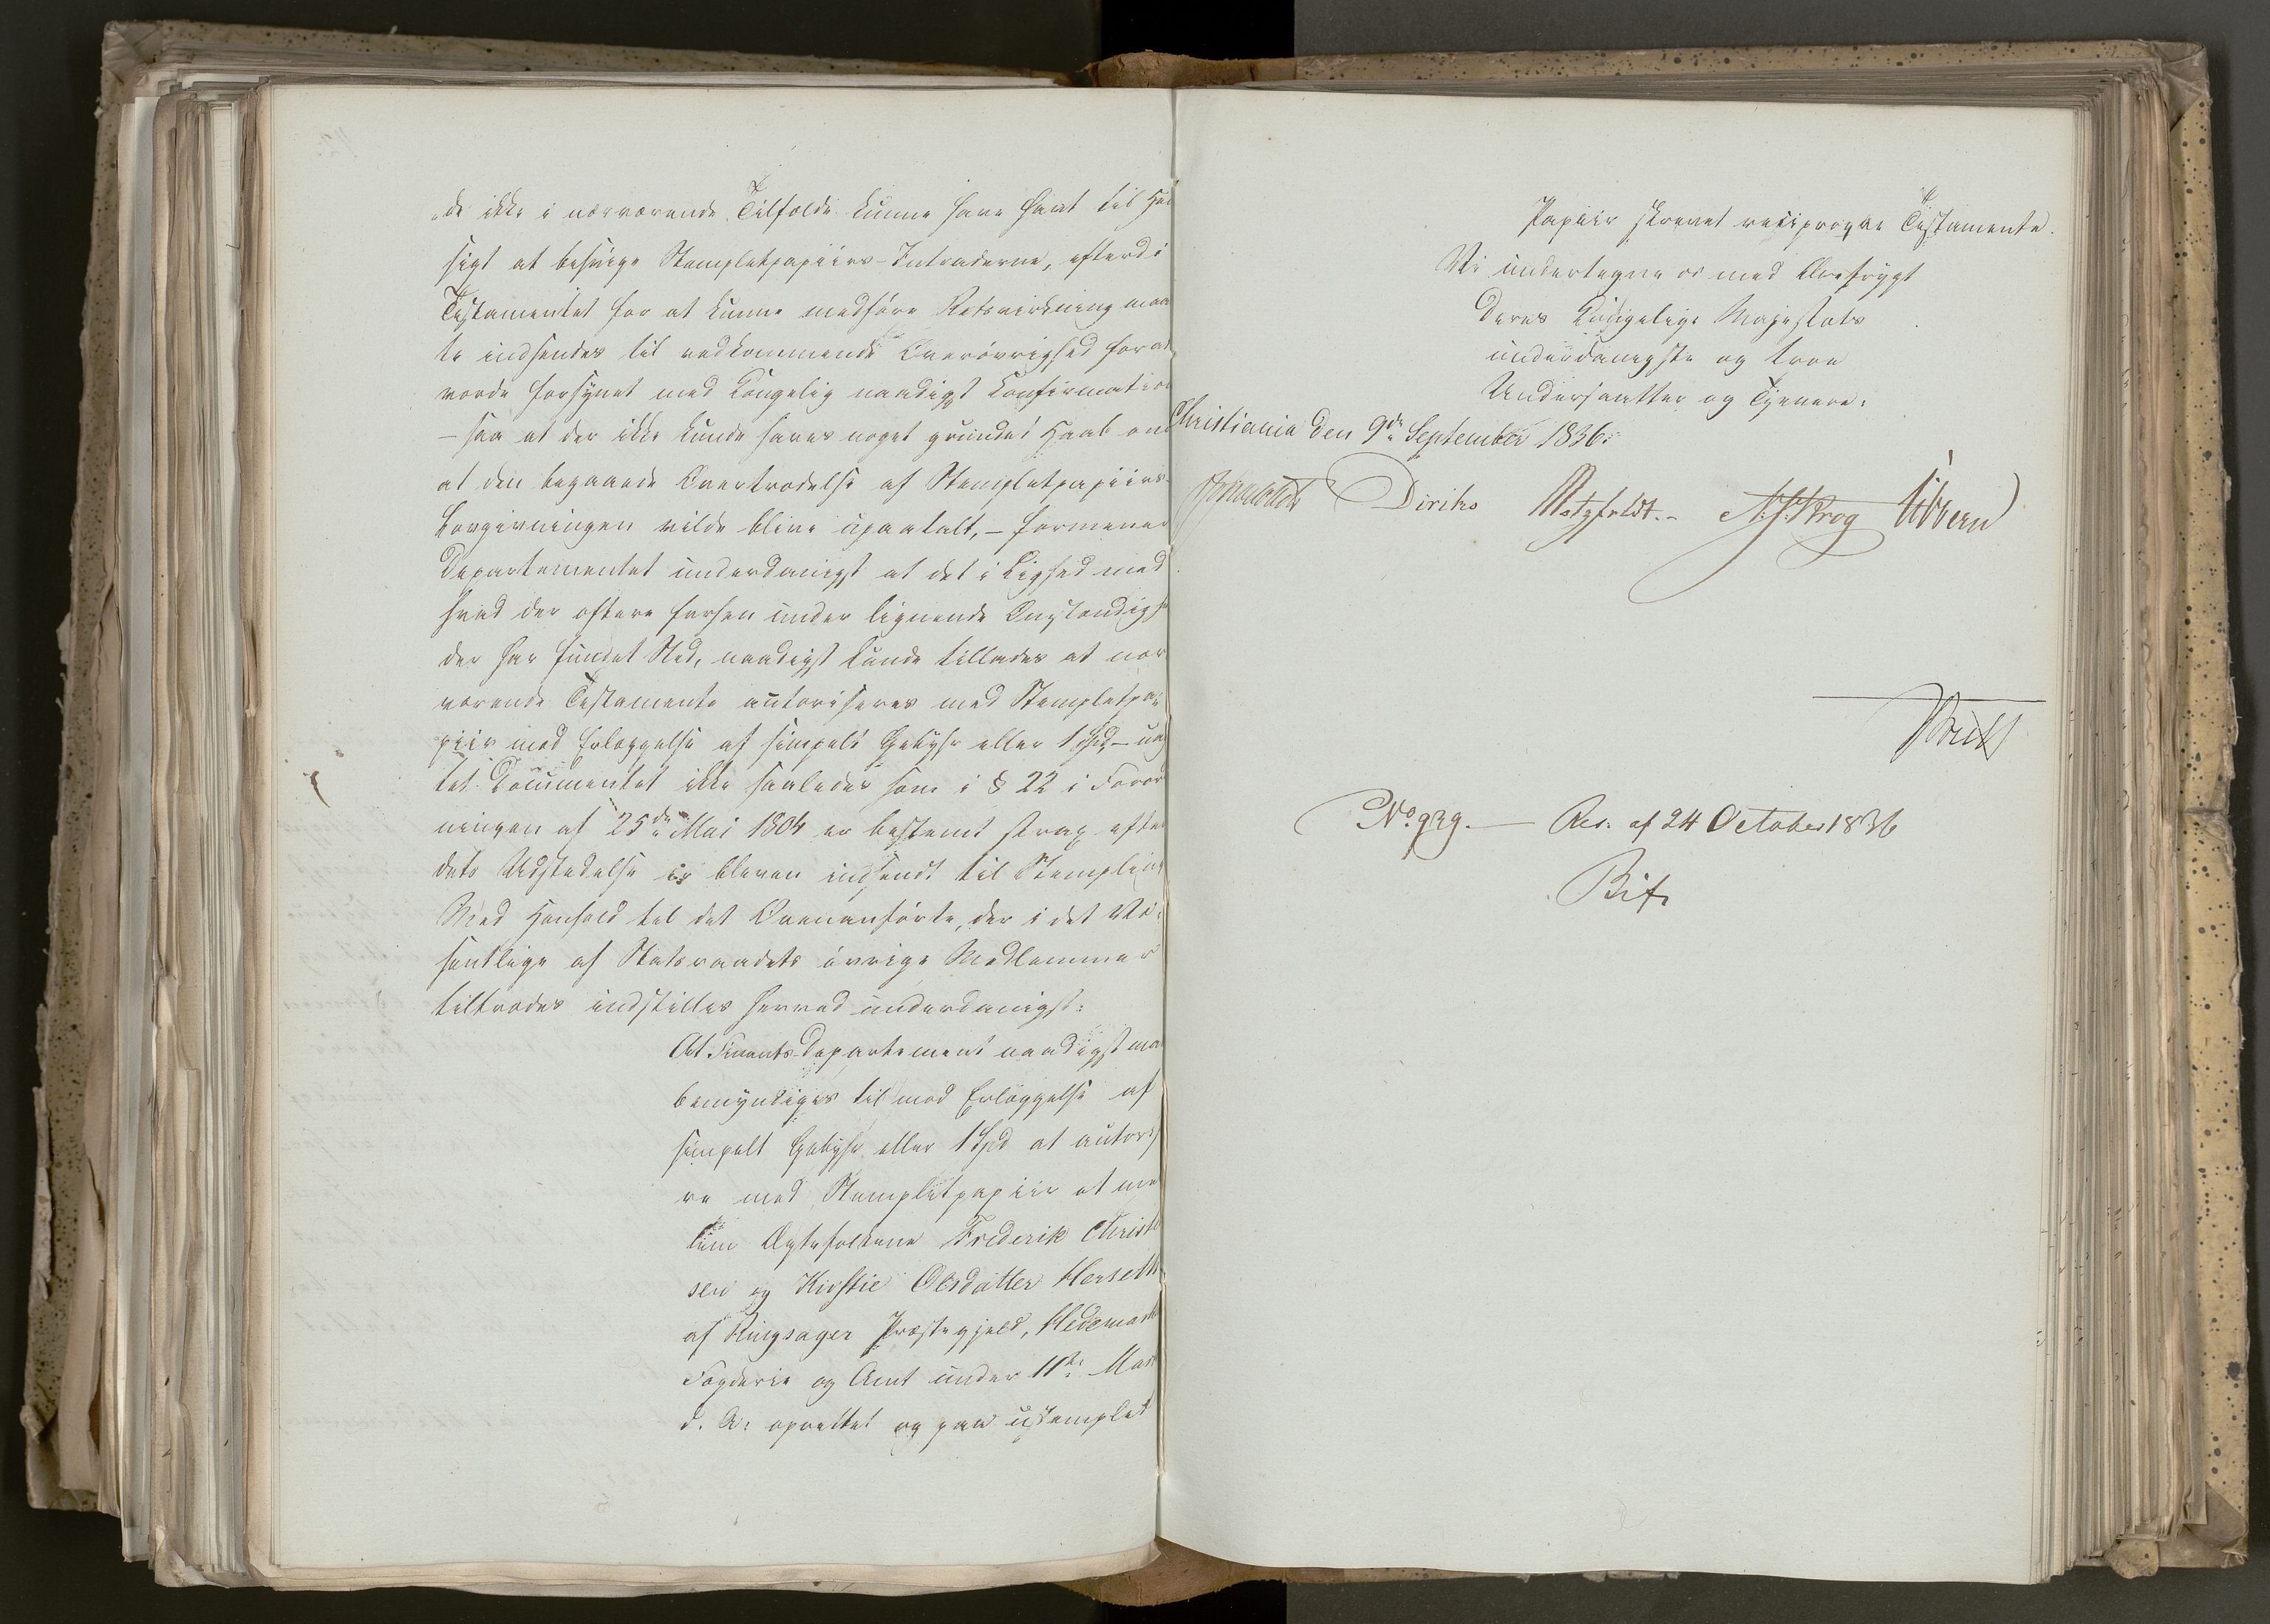 de ikke i nærværende Tilfælde kunne have havt til Hen
sigt at besvige Stempletpapiirs-Intraderne, efterdi
Testamentet for at kunne medføre Retsvirkning maa
te indsendes til vedkommende Overøvrighed for at
vorde forsynet med Kongelig naadigst Confirmation
– saa at der ikke kunde haves noget grundet Haab om
at den begaaede Overtrædelse af Stempletpapiirs-
Lovgivningen vilde blive upaatalt, – formener
Departementet underdanigst at det i Lighed med
hvad der oftere forhen under lignende Omstændighe
der har fundet Sted, naadigst kunde tillades at nær
værende Testamente autoriseres med Stempletpa-
piir mod Erlæggelse af simpelt Gebyhr eller 1 Spd – uag
tet Documentet ikke saaledes som i § 22 i Forord
ningen af 25de Mai 1804 er bestemt strax efter
dets Udstedelse er bleven indsendt til Stempling
Med Henhold til det Ovenanførte, der i det Væ-
sentlige af Statsraadets øvrige Medlemmer
tiltrædes indstilles herved underdanigst:
At Finants-Departement naadigst maa
bemyndiges til mod Erlæggelse af
simpelt Gebyhr eller 1 Spd at autoris
re med Stempletpapiir et mel
lem Ægtefolkene Frederik Christ
sen og Kirstie Olsdatter Herseth
af Ringsager Præstegjeld, Hedemark
Fogderie og Amt under 11te Mar
d. A. oprettet og paa ustemplet
Papiir skrevet reciproqve Testamente.
Vi undertegne os med Ærefrygt
Deres Kongelige Majestæts
underdanigste og troe
Undersaatter og Tjenere.
Christiania den 9de September 1836.
Diriks Motzfeldt. Krog Vibern
No. 929. — Res. af 24 October 1836
Bif.